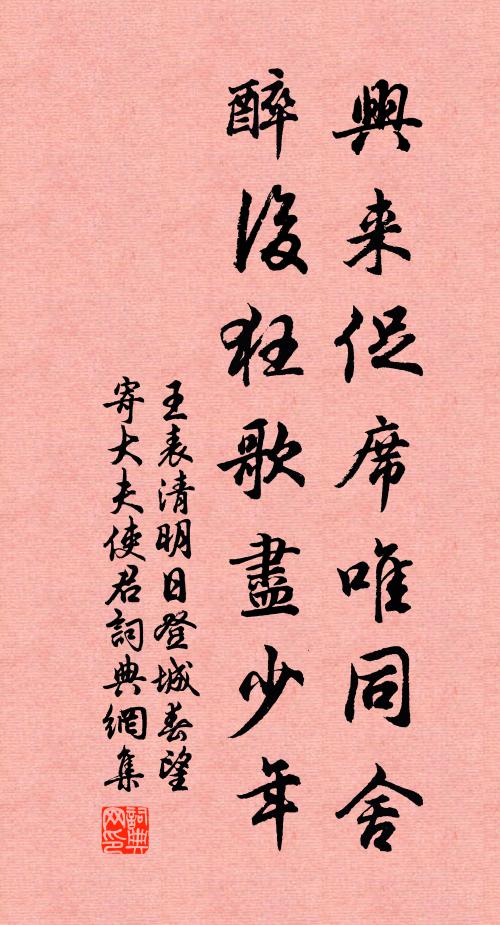 興来促席唯同舍
醉後狂歌盡少年
王表清明日登城春望
寄大夫使君詞典網集
詞典网印